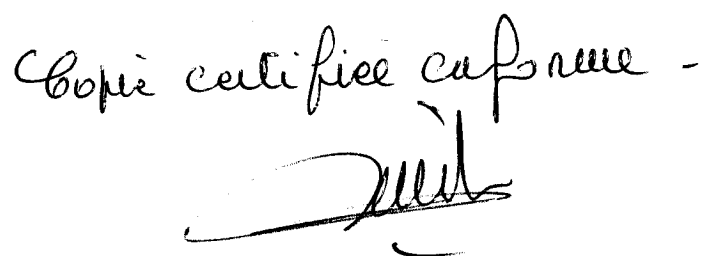 Copie certifiée conforme -